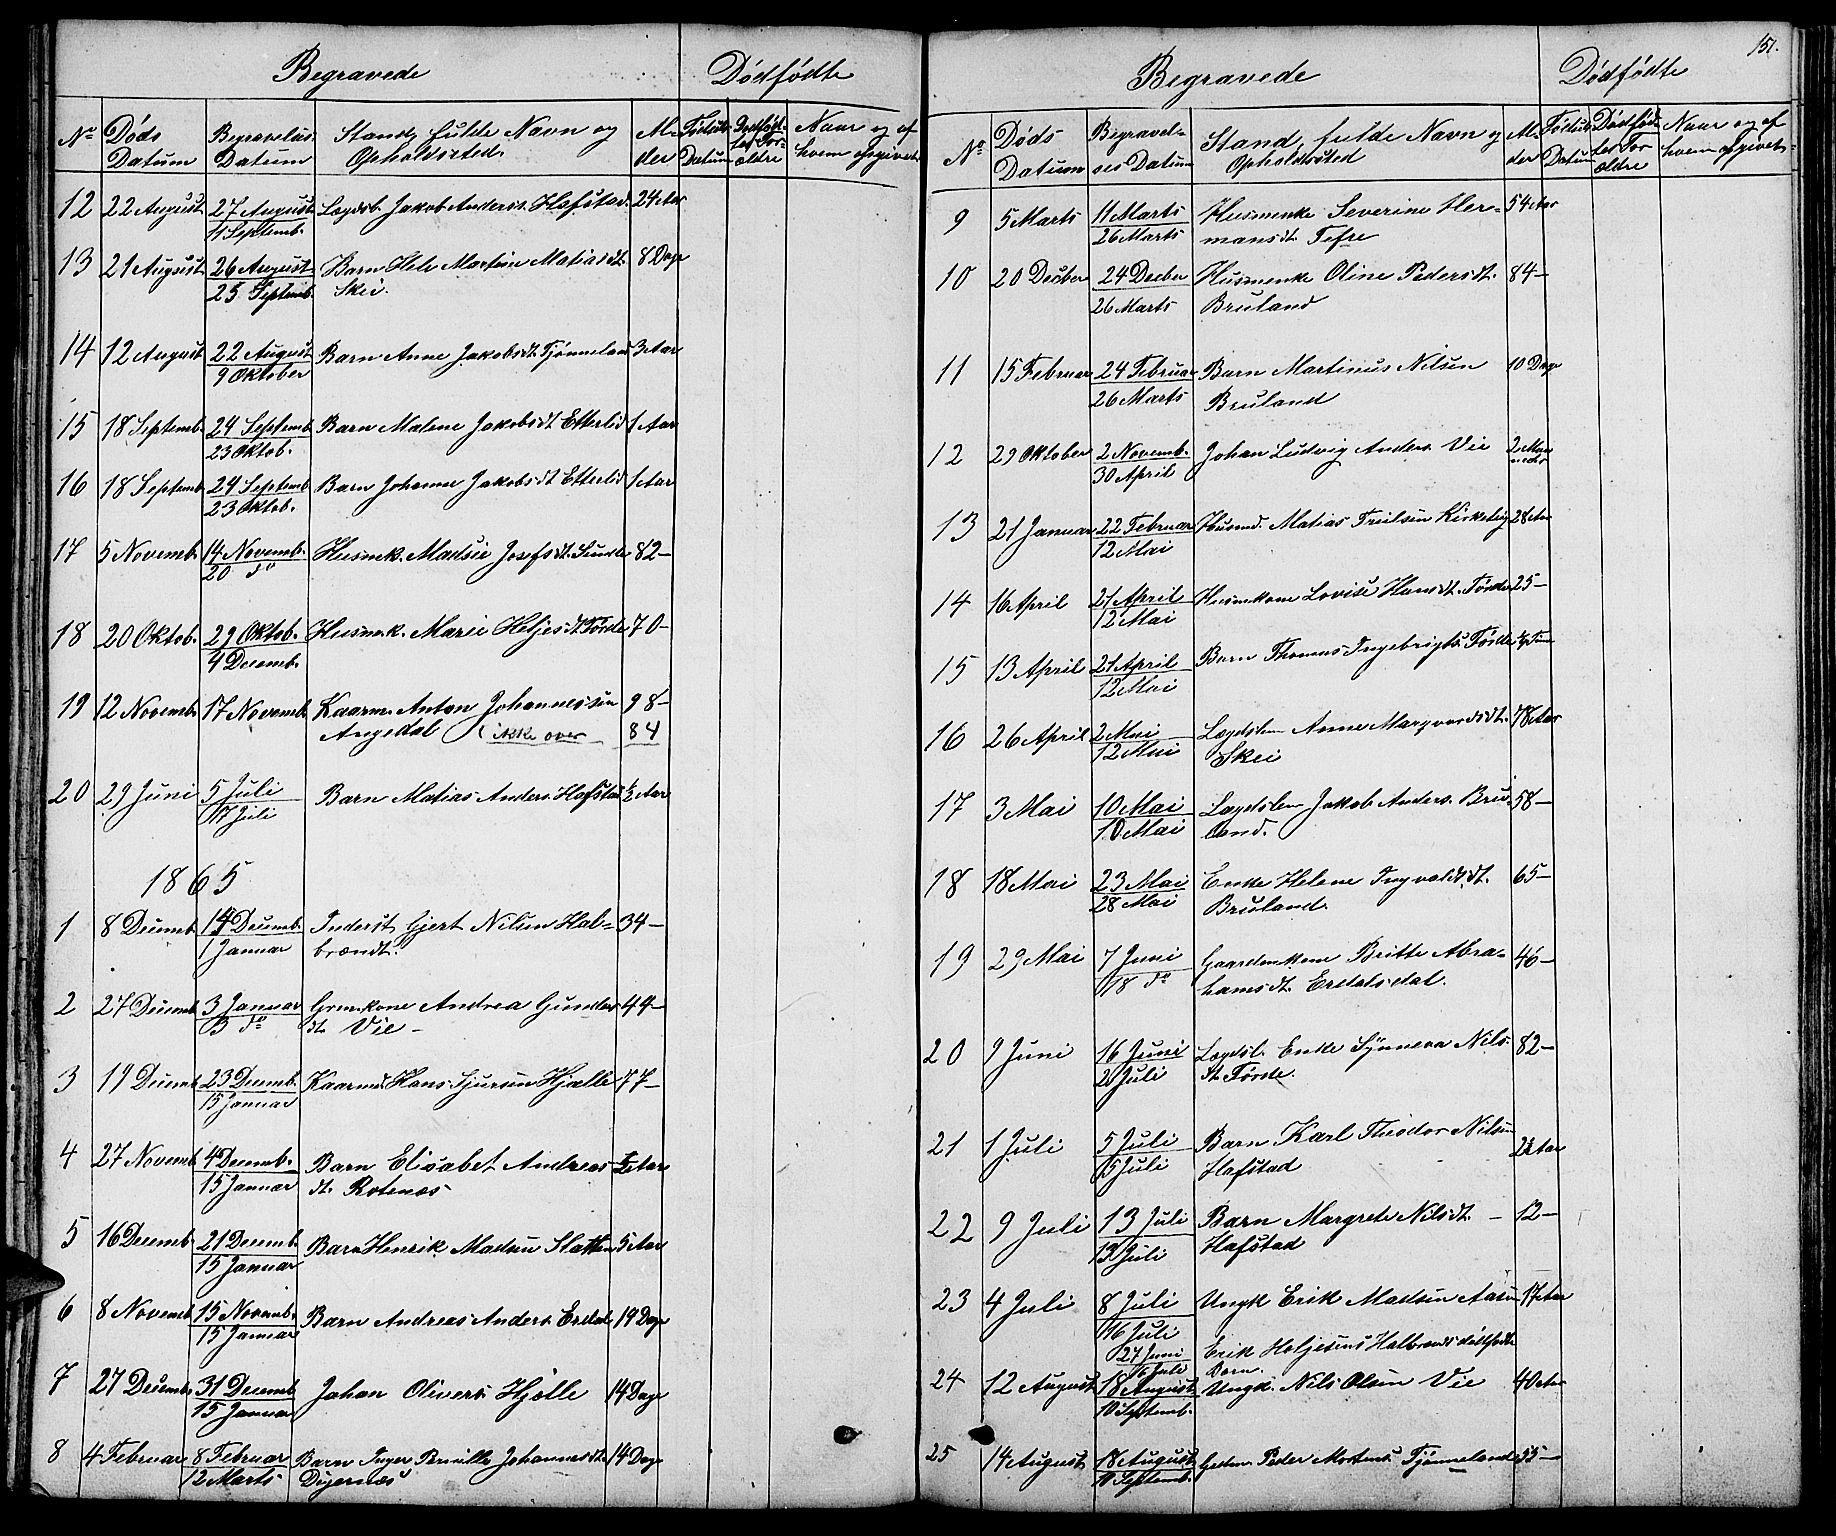 Begravede
Dødfødte
No Døds Datum
Begravelses Datum
Stand, fulde Navn og Opholdssted.
Alder
Fødsels Datum
Dødfødtes Forældre
Naar og af hvem opgivet
12 22 August 27 August Lægdsl. Jakob Anders. Hafstad. 24 Aar
11 Septemb.
13 21 August 26 August Barn Hele Martine Matiasdt. 8 Dage
25 Septemb. Skei.
14 12 August 22 August Barn Anne Jakobsdt. Tjønneland 3 Aar
9 Oktober
15 18 Septemb. 24 Septemb. Barn Malene Jakobsdt. Etterlid 1 Aar
23 Oktob.
16 18 Septemb. 24 Septemb. Barn Johanne Jakobsdt. Etterlid 1 Aar
23 Oktob.
17 5 Novemb. 14 Novemb. Husmk. Madsie Josefsdt. Sunde 82 —
20 do
18 20 Oktob. 29 Oktob. Husmk. Marie Heljesdt. Førde 70 —
4 Decemb.
19 12 Novemb. 17 Novemb. Kaarm. Anton Johannessen 98 —
Angedal ikke over 84
20 29 Juni 5 Juli Barn Matias Anders. Hafstad ½ Aar
17 Juli
1865
1 8 Decemb. 14 Decemb. Inderst Gjert Nilsen Hal= 34 —
1 Januar brændt.
2 27 Decemb. 3 Januar Grmkone Andrea Gunders 44 —
3 do dt. Vie —
3 19 Decemb. 23 Decemb. Kaarmd. Hans Sjursen Hjelle 77 —
15 Januar
4 27 Novemb. 4 Decemb. Barn Elisabet Andreas ½ Aar
15 Januar dt. Rotenæs
5 16 Decemb. 21 Decemb. Barn Henrik Madsen Slatten 5 Aar
15 Januar
6 8 Novemb. 15 Novemb. Barn Andreas Anders. Erdal 19 Dage
15 Januar
7 27 Decemb. 31 Decemb. Johan Olivers. Hjelle 14 Dage
15 Januar
8 4 Februar 8 Februar Barn Inger Pernille Johannesdt. 14 Dage
12 Marts Digernæs
151.
Begravede
Dødfødte
No Døds Datum
Begravel= ses Datum
Stand, fulde Navn og Opholdssted
Alder
Fødsels Datum
Dødfødtes Forældre
Naar og af hvem opgivet
9 5 Marts 11 Marts Husmenke Severine Her= 54 Aar
26 Marts mansdt. Tefre
10 20 Decber 24 Decber Husmenke Oline Pedersdt. 84 —
26 Marts Bruland
11 15 Februar 24 Februar Barn Martinus Nilsen 10 Dage
26 Marts Bruland
12 29 Oktober 2 Novemb. Johan Ludvig Anders. Vie 2 Maaneder
30 April
13 21 Januar 22 Februar Husmd. Matias Kirketeig 28 Aar
12 Mai
14 16 April 21 April Husmkone Lovise Hansdt. Førde 25 —
12 Mai
15 13 April 21 April Barn Thomas Ingebrigts. Førde
12 Mai
16 26 April 2 Mai Lægdslem Anne Marqvardsdt. 78 Aar
12 Mai Skei
17 3 Mai 10 Mai Lægdslem Jakob Anders. Bru= 58 —
10 Mai land.
18 18 Mai 23 Mai Enke Helene Ingvaldsdt. 65 —
28 Mai Bruland.
19 29 Mai 7 Juni Gaardmkone Britte Abra= 46 —
18 do hamsdt. Erdalsdal.
20 9 Juni 16 Juni Lægdsl. Enke Synneva Nils 82 —
2 Juli dt. Førde.
21 1 Juli 5 Juli Barn Karl Theodor Nilsen 2½ Aar
15 Juli Hafstad
22 9 Juli 13 Juli Barn Margrete Nilsdt. — 12 —
13 Juli Hafstad
23 4 Juli 8 Juli Ungk Erik Madsen Aasen 17 Aar
16 Juli
27 Juni Erik Heljesens Halbrends dødfødte
16 Juli Barn.
24 12 August 18 August Ungk. Nils Olsen Vie 40 Aar
10 Septemb.
25 14 August 18 August Gadm. Peder Mortens. Tjønneland 55 —
10 Septemb.